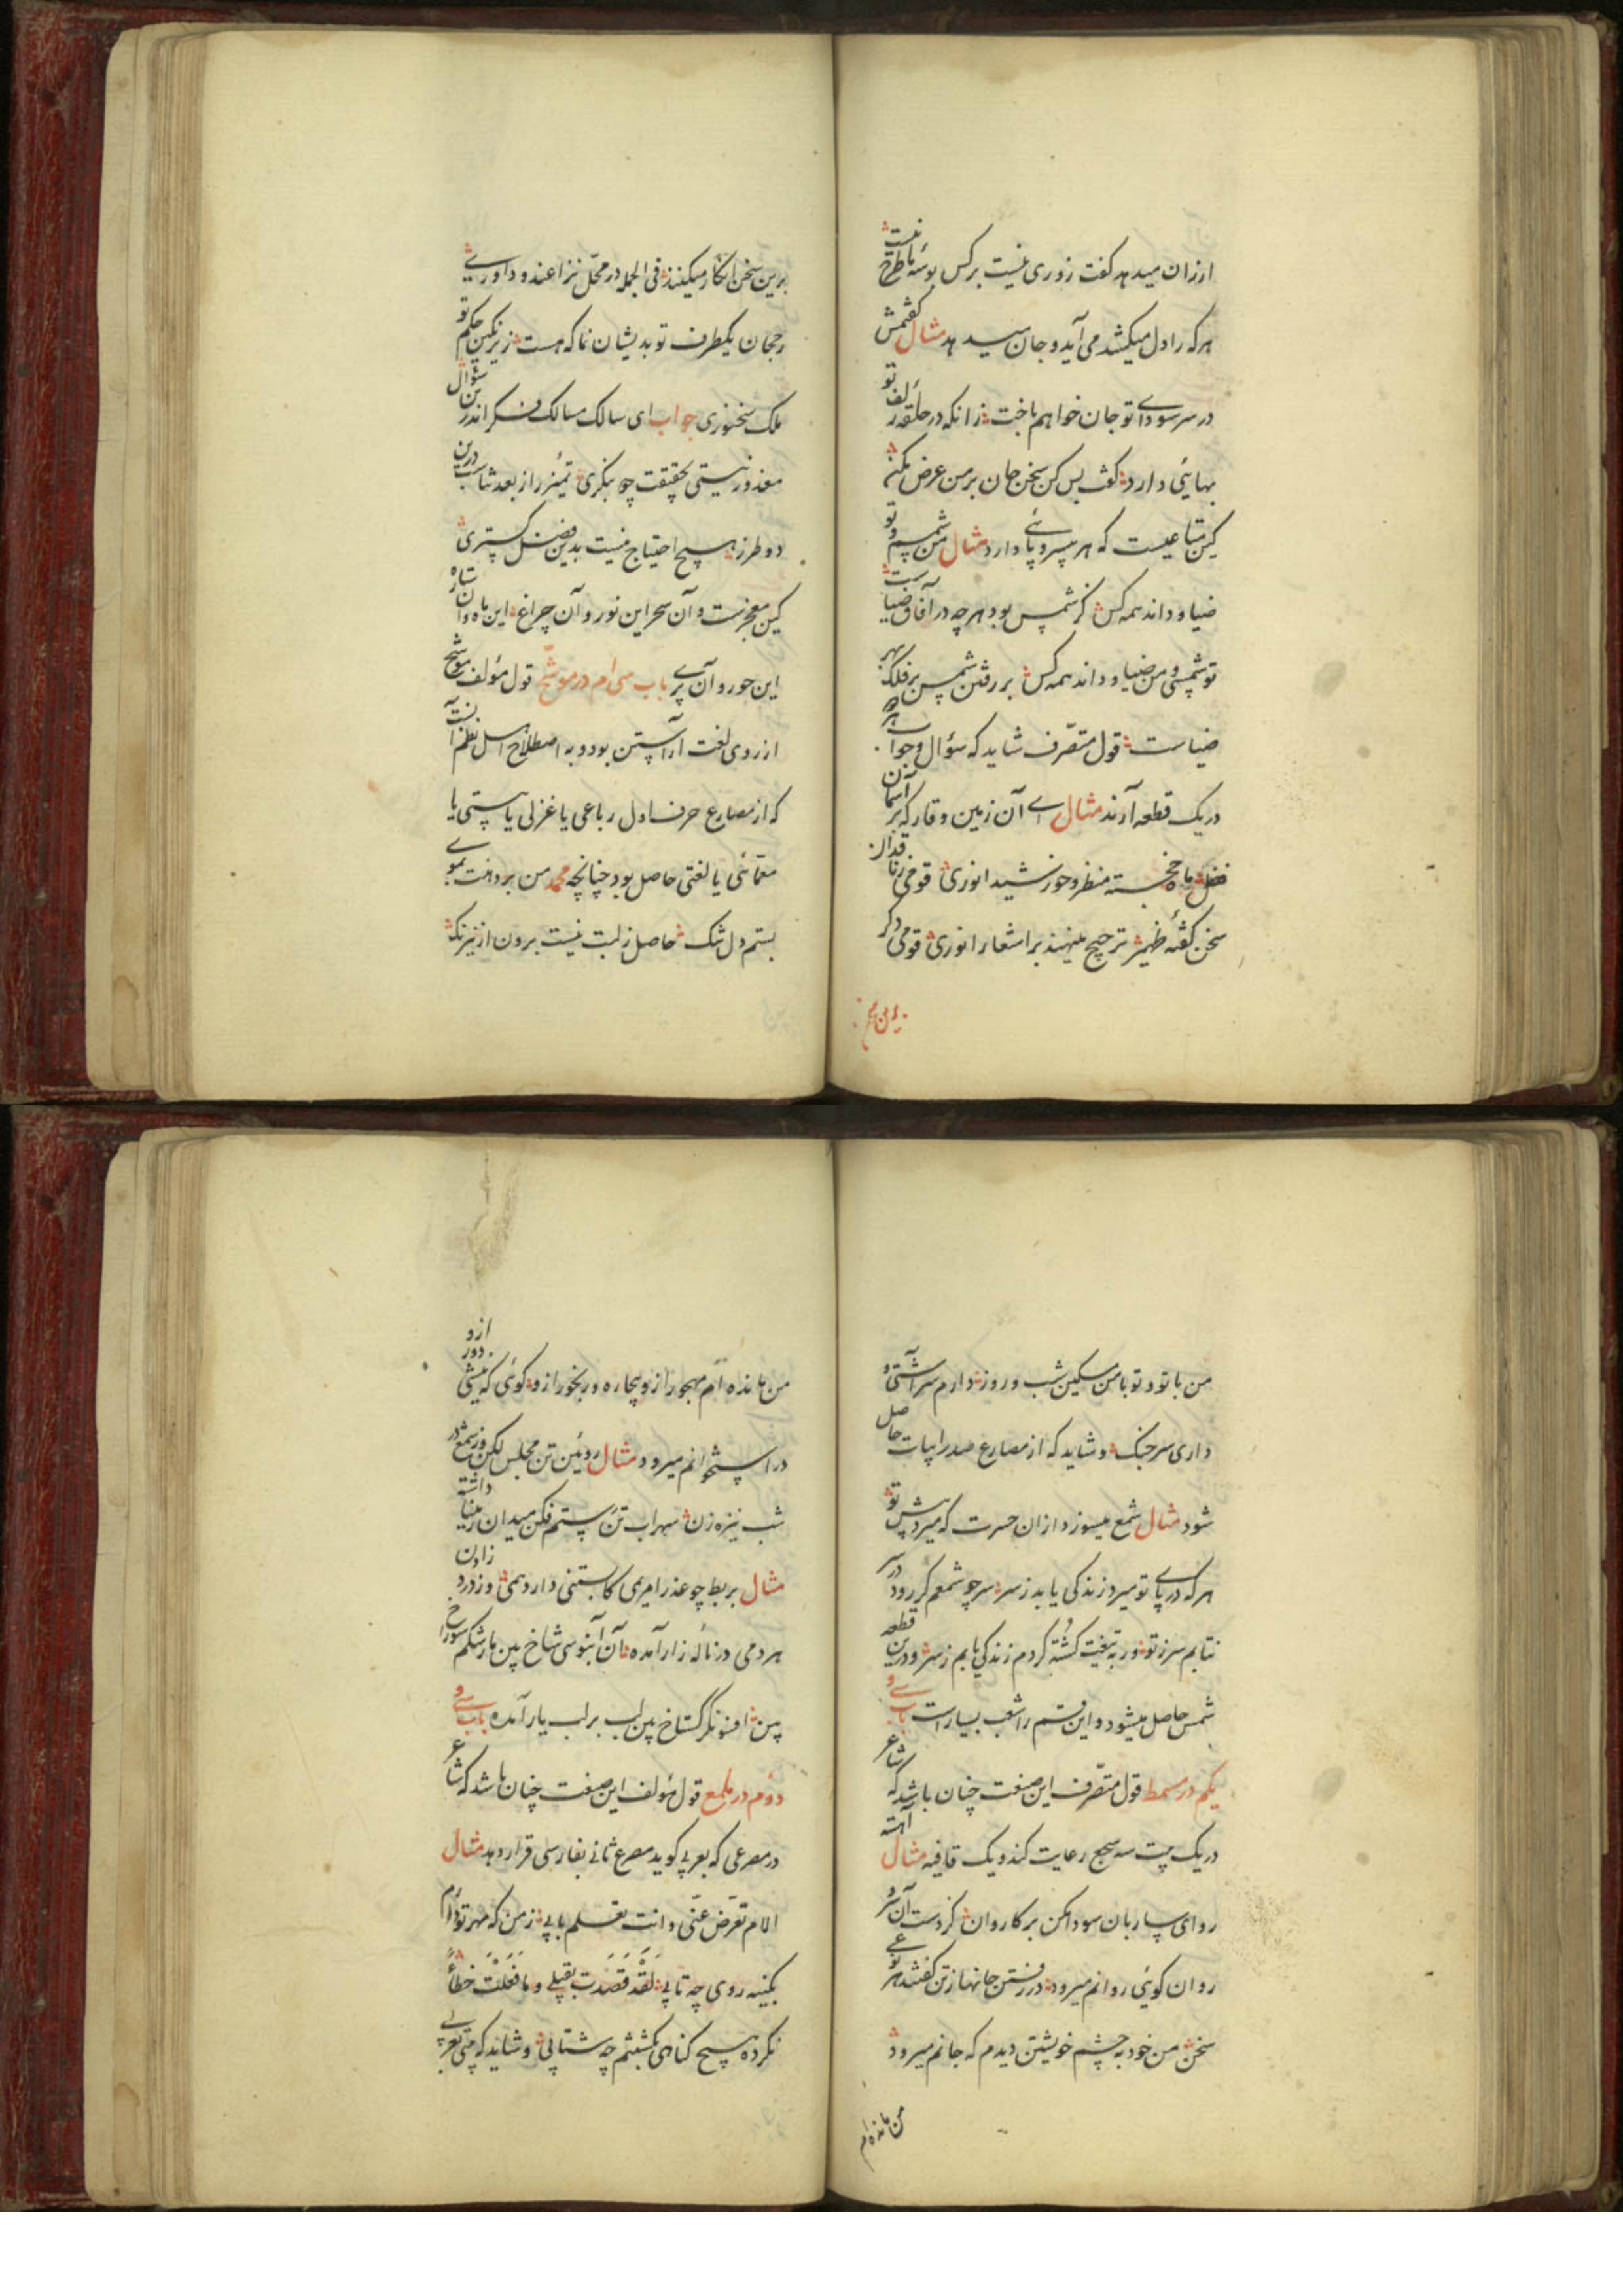 ارزان میدهد گفت زوری نیست برکس بوسهٔ ما طرح نیست
هرکه را دل میکشد می آید و جان میدهد مثال گفتمش
در سر سودای تو جان خواهم باخت زانکه در حلقه زلف تو
بهائی دارد گفت بس کن سخن جان بر من عرض مکن
کین متاعیست که هر بی سر و پائی دارد مثال من شمسم و تو
ضیا و داند همه کس کز شمس بود هرچه در آفاق ضیاست
تو شمسی و من ضیا و داند همه کس بر رفتن شمس بر فلک بهر
ضیاست قول متصرف شاید که سؤال و جواب را
در یک قطعه آرند مثال ای آن زمین وقار که بر آسمان
فضل ماه خجسته منظر و خورشید انوری قومی ز ناقدان
سخن گفتهٔ ظهیر ترجیح مینهند بر اشعار انوری قومی دگر
برین سخن
برین سخن انکار میکنند فی الجمله در محل نزاعند و داوری
رجحان یکطرف تو بدیشان نما که هست زیر نگین حکم تو
ملک سخنوری جواب ای سالک مسالک فکر اندرین سؤال
معذور نیستی بحقیقت چو بنگری تمییز را ز بعد تناسب درین
دو طرز هیچ احتیاج نیست بدین فضل گستری
کین معجزست و آن سحر این نور و آن چراغ این ماه و آن ستاره
این حور و آن پری باب سی ام در موشح قول مؤلف موشح
از روی لغت آراستن بود و به اصطلاح اهل نظم آنست
که از مصارع حرف اول رباعی یا غزلی یا بیتی یا
معمائی یا لغتی حاصل بود چنانچه محمد من بر دهنت بموی
بستم دل تنگ حاصل ز لبت نیست برون از نیرنگ
من با تو و تو با من مسکین شب و روز دارم سر آشتی و
داری سر جنگ و شاید که از مصارع صدر ابیات حاصل
شود مثال شمع میسوزد ازان حسرت که میرد پیش تو
هرکه در پای تو میرد زندگی یابد ز سر سر چو شمعم گر رود در سر
نتابم سر ز تو ور به تیغت کشته گردم زندگی یابم ز سر و درین قطعه
شمس حاصل میشود و این قسم را شعب بسیار است باب سی و
یکم در مسمط قول متصرف این صنعت چنان باشد که شاعر
در یک بیت سه سجع رعایت کند و یک قافیه مثال آهسته
رو ای ساربان سودا مکن بر کاروان کز دست آن سرو
روان گوئی روانم میرود در رفتن جانها ز تن گفتند هر نوعی
سخن من خود به چشم خویشتن دیدم که جانم میرود
من مانده ام
من مانده ام مهجور ازو بیچاره و رنجور ازو گوئی که نیشی دور ازو
در استخوانم میرود مثال روئین تن مجلس لکن وز شمع در
شب نیزه زن سهراب تن رستم فکن میدان ز مینا داشته
مثال بربط چو عذرا مریمی کابستنی دارد همی وز درد زادن
هر دمی در نالهٔ زار آمده آن آبنوسی شاخ بین مار شکم سوراخ
بین افسونگر گستاخ بین لب بر لب یار آمده باب سی و
دوم در ملمع قول مؤلف این صنعت چنان باشد که شاعر
در مصرعی که بعربی گوید مصرع ثانی بفارسی قرار دهد مثال
الام تعرض عنی و انت تعلم بابی ز من که مهر تو دارم
بکینه روی چه تابی لَقَد قَصَدتَ بقتلی و ما فَعَلتُ خطاءً
نکرده هیچ گناهی بکشتنم چه شتابی و شاید که بیتی بعربی